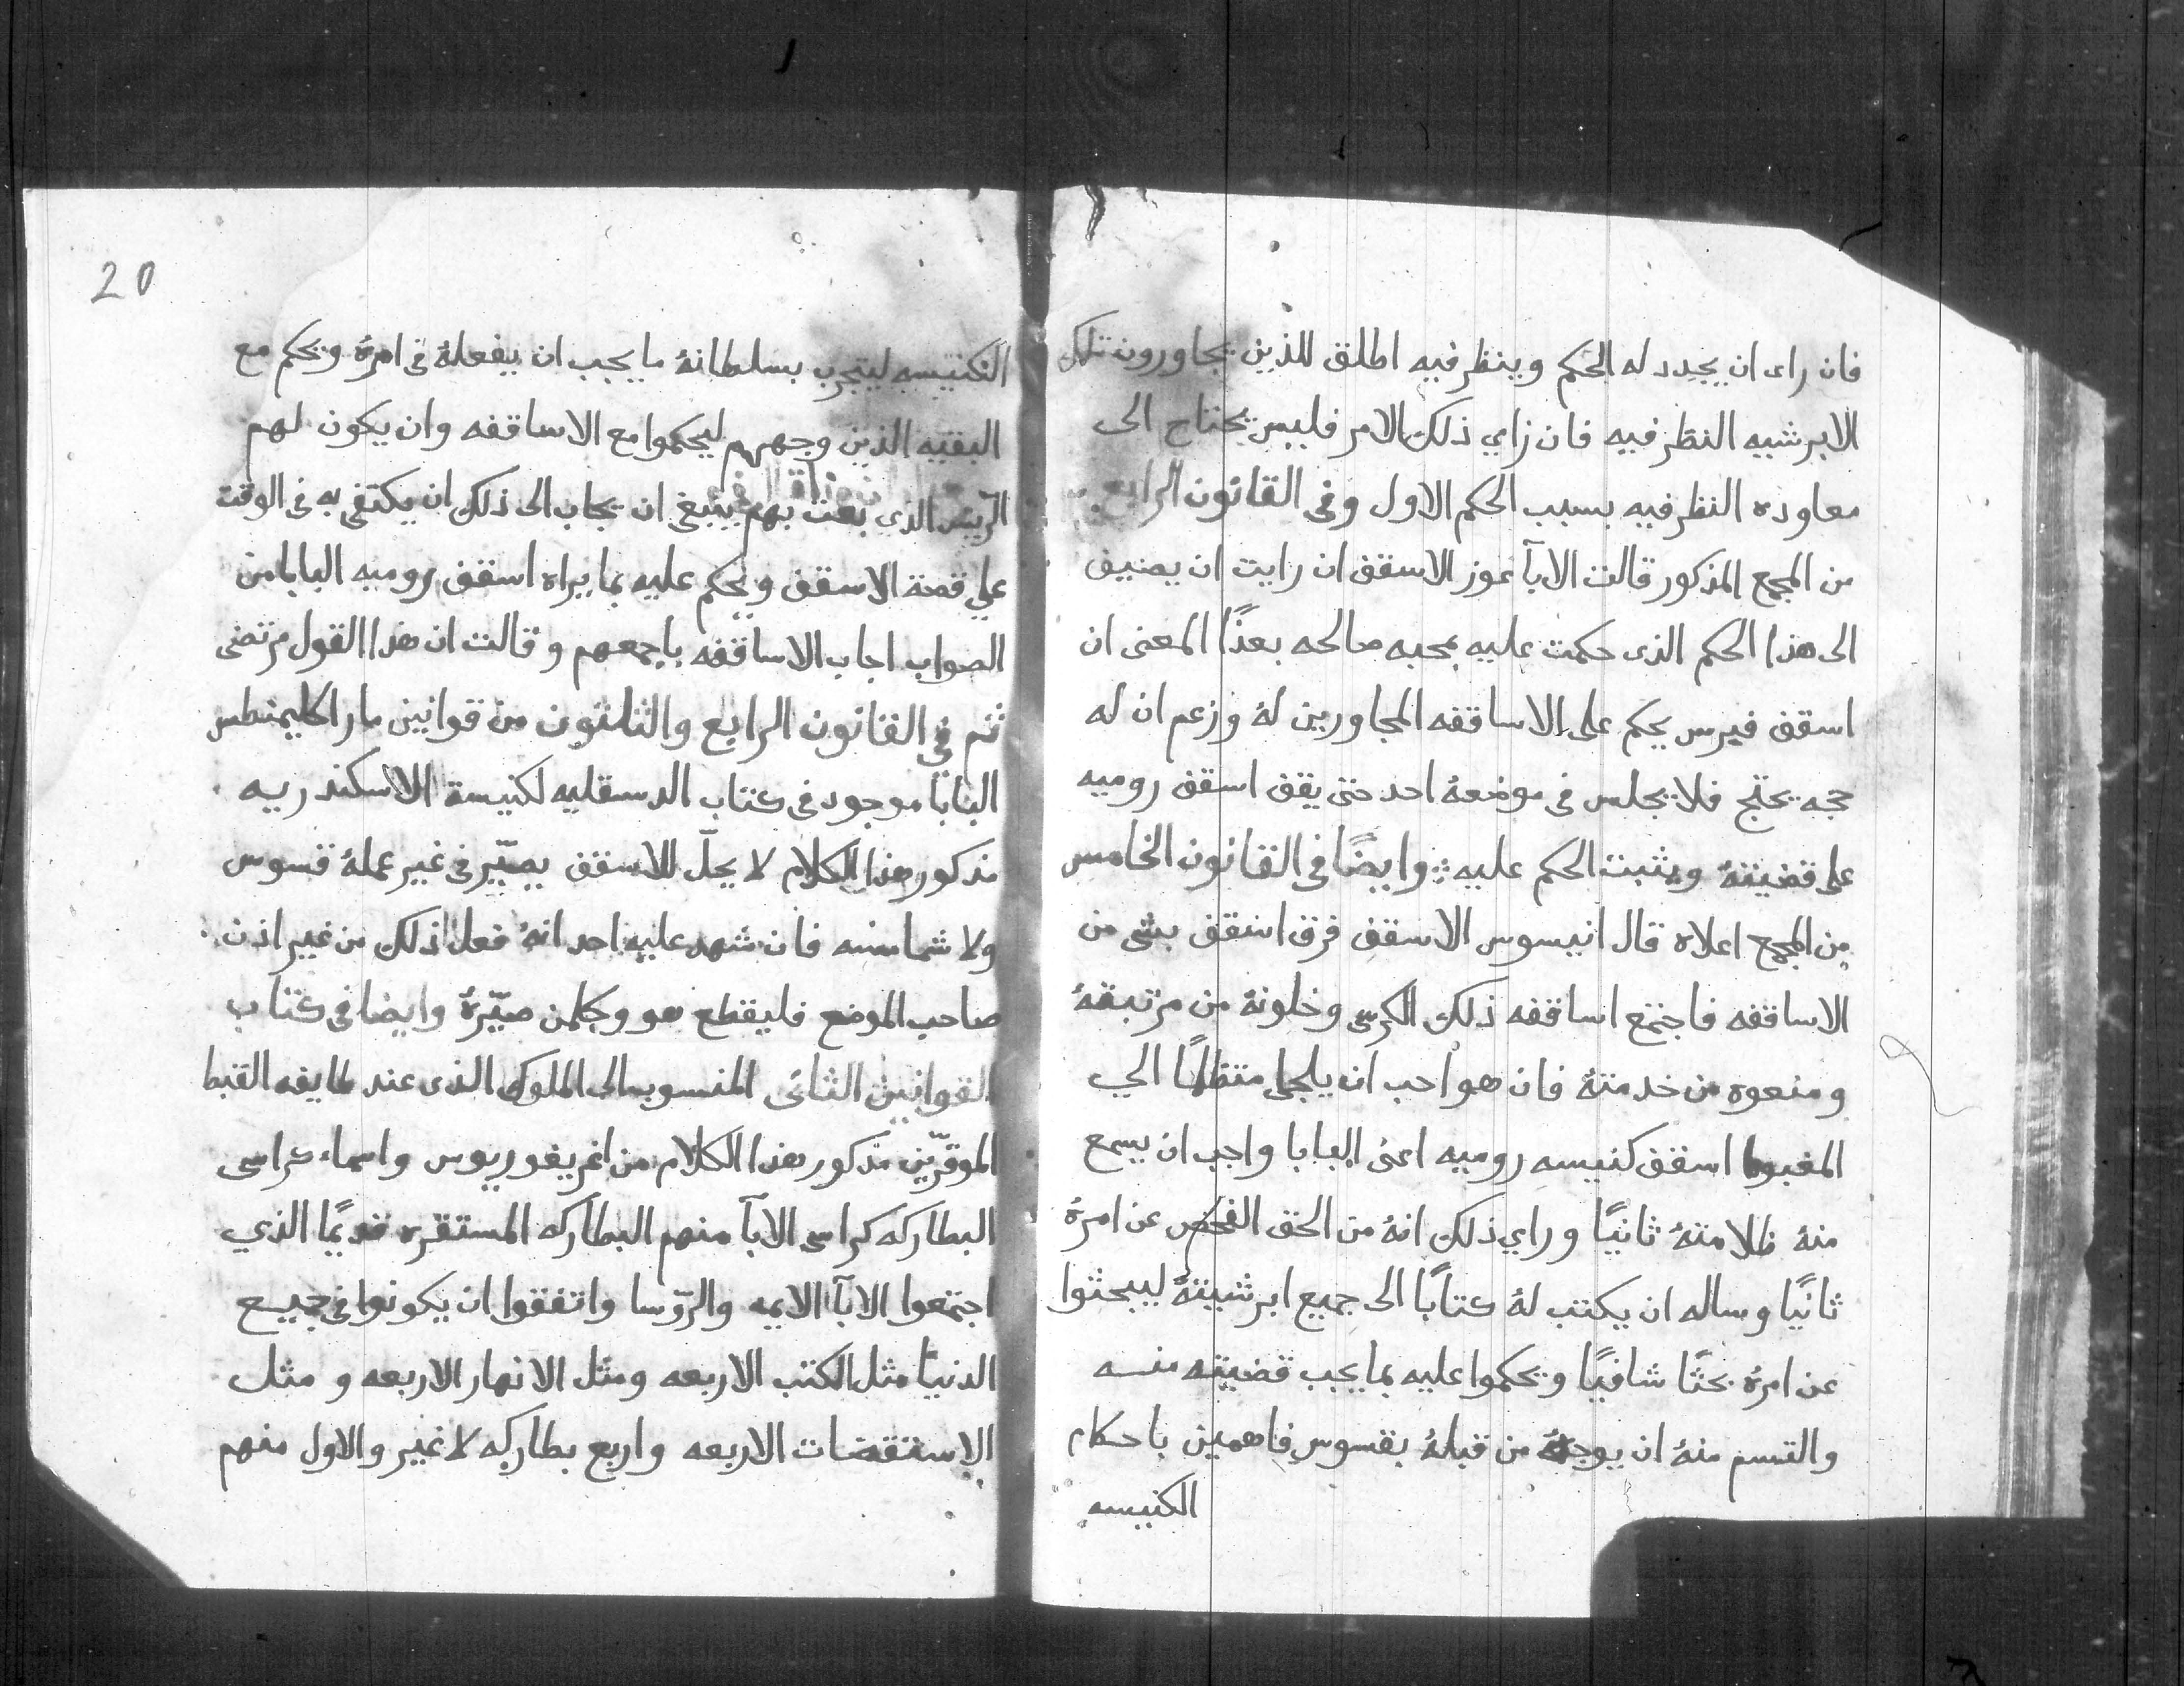 فان راى ان يجدد له الحكم وينظر فيه اطلق للذين يجاورون تلك
الابرشيه النظر فيه فان راي ذلك الامر فليس يحتاج الى
معاوده النظر فيه بسبب الحكم الاول وفى القانون الرابع
من المجمع المذكور قالت الابآ غوز الاسقف ان رايت ان يضيف
الى هذا الحكم الذى حكمت عليه بمحبه صالحه بعذًا المعنى ان
اسقف فيرس يحكم على الاساقفه المجاورين لهُ وزعم ان له
حجه يحتج فلا يجلس فى موضعهُ احد حتى يقف اسقف روميه
على قضيتهُ ويثبت الحكم عليه وايضًا فى القانون الخامس
من المجمع اعلاه قال انيسوس الاسقف فرق اسقف بشى من
الاساقفه فاجتمع اساقفه ذلك الكرسى وخلونهُ من مرتبقهُ
ومنعوه من خدمتهُ فان هو احب ان يلجا متظلمًا الي
المغبوط اسقف كنيسه روميه اعنى البابا واجب ان يسمع
منهُ ظلامتهُ ثانيًا وراي ذلك انهُ من الحق الفحص عن امرهُ
ثانيًا وساله ان يكتب لهُ كتابًا الى جميع ابرشيتهُ ليبحثوا
عن امرهُ بحثًا شافيًا ويحكموا عليه بما يجب قضيته منـه
والتسم منهُ ان يوجهُ من قبلهُ بقسوس فاهمين باحكام
الكنيسه
20
الكنيسه ليتجرب بسلطانهُ ما يجب ان يفعلهُ فى امرهُ ويحكم مع
البقيه الذين وجههم ليحكموا مع الاساقفه وان يكون لهم
الرّيس الذى بعث بهم ينبغى ان يجاب الى ذلك ان يكتفى به فى الوقت
علي قصة الاسقف ويحكم عليه بما يراه اسقف روميه البابا من
الصواب اجاب الاساقفه باجمعهم وقالت ان هذا القول مرتضى
ثم فى القانون الرابع والثلثون من قوانين مار اكليمنطس
البابا موجود فى كتاب الدسقليه لكنيسة الاسكندريه
مذكور هذا الكلام لا يحلّ للاسقف يصيّر فى غير عملهُ قسوس
ولا شمامسه فان شهد عليه احد انهُ فعل ذلك من غير اذن
صاحب الموضع فليقطع هو وكلمن صيّرهُ وايضا فى كتاب
القوانين الثانى المنسوب الى الملوك الذى عند طايفه القبط
الموقرّين مذكور هذا الكلام من اغريغوريوس واسماء كراسى
البطاركه كراسى الابآ منهم البطاركه المستقره قديمًا الذي
اجتمعوا الابآ الايمه والرّوسا واتفقوا ان يكونوا فى جميع
الدنيا مثل الكتب الاربعه ومثل الانهار الاربعه ومثل
الاستقضات الاربعه واربع بطاركه لا غير والاول منهم